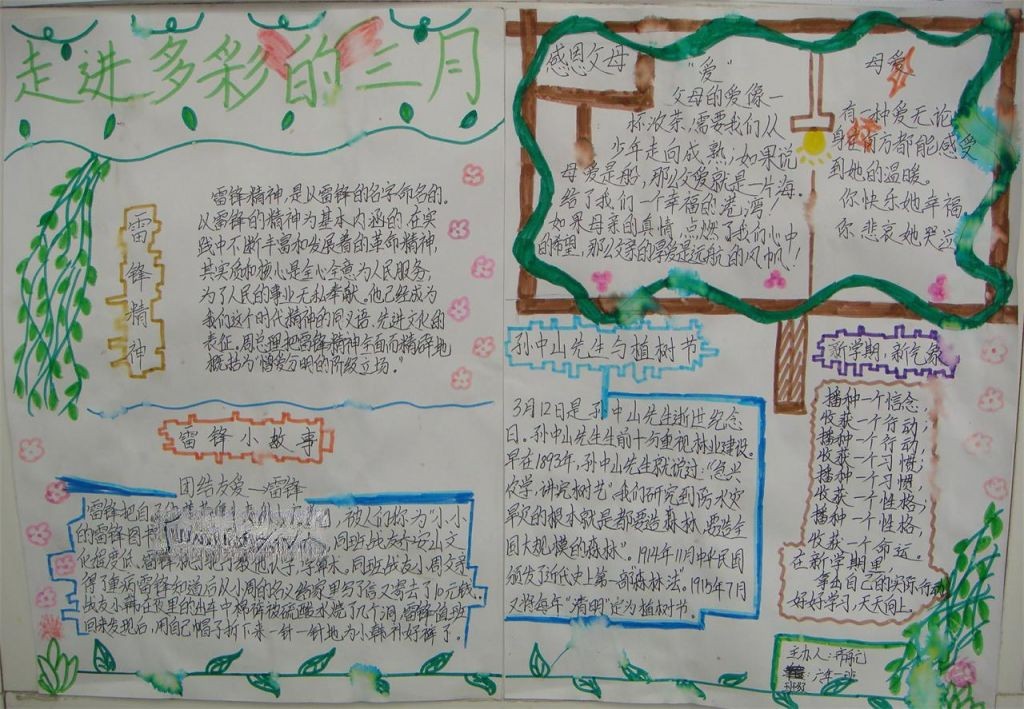 走进多彩的三月
雷锋精神
雷锋精神,是以雷锋的名字命名的。
以雷锋的精神为基本内涵的,在实
践中不断丰富和发展着的革命精神,
其实质和核心是全心全意为人民服务,
为了人民的事业无私奉献。他已经成为
我们这个时代精神的同义语、先进文化的
表征。周总理把雷锋精神全面而精辟地
概括为“憎爱分明的阶级立场。”
雷锋小故事
团结友爱—雷锋
雷锋把自己 被人们称为“小小
的雷锋图书 同班战友乔安山文
化程度低,雷锋就手把手教他认字,学算术。同班战友小周父亲
得了重病雷锋知道后从小周的名义给家里写了信又寄去了10元钱。
战友小韩在夜里的出车中棉裤被硫酸水烧了几个洞,雷锋值班
回来发现后,用自己帽子折下来一针一针地为小韩补好裤了。
感恩父母
“爱”
父母的爱像一
杯浓茶,需要我们从
少年走向成熟,如果说
母爱是船,那么父爱就是一片海。
给了我们一个幸福的港湾!
如果母亲的真情,点燃了我们心中
的希望,那么父亲的厚爱是远航的风帆!
母爱
有一种爱无论
身在何方都能感受
到她的温暖。
你快乐她幸福,
你悲哀她哭泣
孙中山先生与植树节
3月12日是孙中山先生逝世纪念
日。孙中山先生生前十分重视林业建设。
早在1893年,孙中山先生就说过:“急兴
农学,讲究树艺”我们研究到防水灾
旱灾的根本就是都要造森林,要造全
国大规模的森林”。1914年11月中华民国
颁发了近代史上第一部“森林法”。1915年7月
又将每年“清明”定为植树节。
新学期,新气象
播种一个信念,
收获一个行动;
播种一个行动,
收获一个习惯;
播种一个习惯,
收获一个性格;
播种一个性格,
收获一个命运。
在新学期里,
拿出自己的实际行动
好好学习,天天向上。
主办人:
班级:六年一班